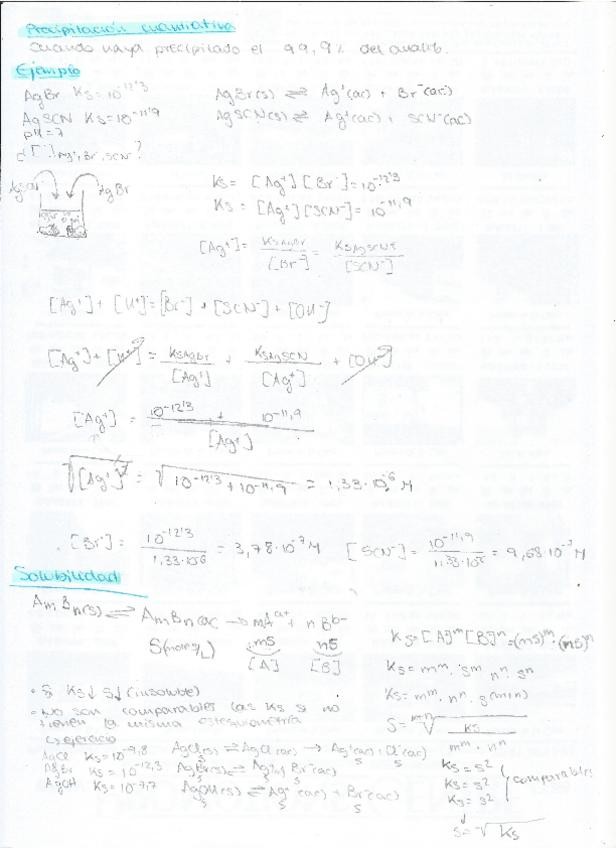 Precipitación cuantitativa
Cuando haya precipitado el 99,9% del analito.
Ejemplo
AgBr Ks = 10^-12'3
AgBr(s) ⇌ Ag⁺(ac) + Br⁻(ac)
AgSCN Ks = 10^-11'9
AgSCN(s) ⇌ Ag⁺(ac) + SCN⁻(ac)
pH = 7
¿[ ] Ag⁺, Br⁻, SCN⁻?
AgBr
Ks = [Ag⁺][Br⁻] = 10^-12'3
Ks = [Ag⁺][SCN⁻] = 10^-11,9
[Ag⁺] = KsAgBr / [Br⁻] = KsAgSCN / [SCN⁻]
[Ag⁺] + [H⁺] = [Br⁻] + [SCN⁻] + [OH⁻]
[Ag⁺] + [H⁺] = KsAgBr / [Ag⁺] + KsAgSCN / [Ag⁺] + [OH⁻]
[Ag⁺] = 10^-12'3 + 10^-11,9 / [Ag⁺]
√[Ag⁺]² = √10^-12'3 + 10^-11,9 = 1,33·10^-6 M
[Br⁻] = 10^-12'3 / 1,33·10^-6 = 3,78·10^-7 M
[SCN⁻] = 10^-11,9 / 1,33·10^-6 = 9,68·10^-7 M
Solubilidad
AmBn(s) ⇌ AmBn(ac) → mA^a+ + nB^b-
S(mol/L) mS nS
[A] [B]
Ks = [A]^m [B]^n = (mS)^m · (nS)^n
Ks = m^m · S^m · n^n · S^n
Ks = m^m · n^n · S^(m+n)
S = ^(m+n)√ Ks / m^m · n^n
· Si Ks↓ S↓ (insoluble)
- No son comparables las Ks si no
tienen la misma estequiometría
ejercicio
AgCl Ks = 10^-9,8 AgCl(s) ⇌ AgCl(ac) → Ag⁺(ac) + Cl⁻(ac)
S S
AgBr Ks = 10^-12,3
S
AgOH Ks = 10^-7,7
S S S
Ks = S²
Ks = S²
Ks = S²
comparables
S = √Ks